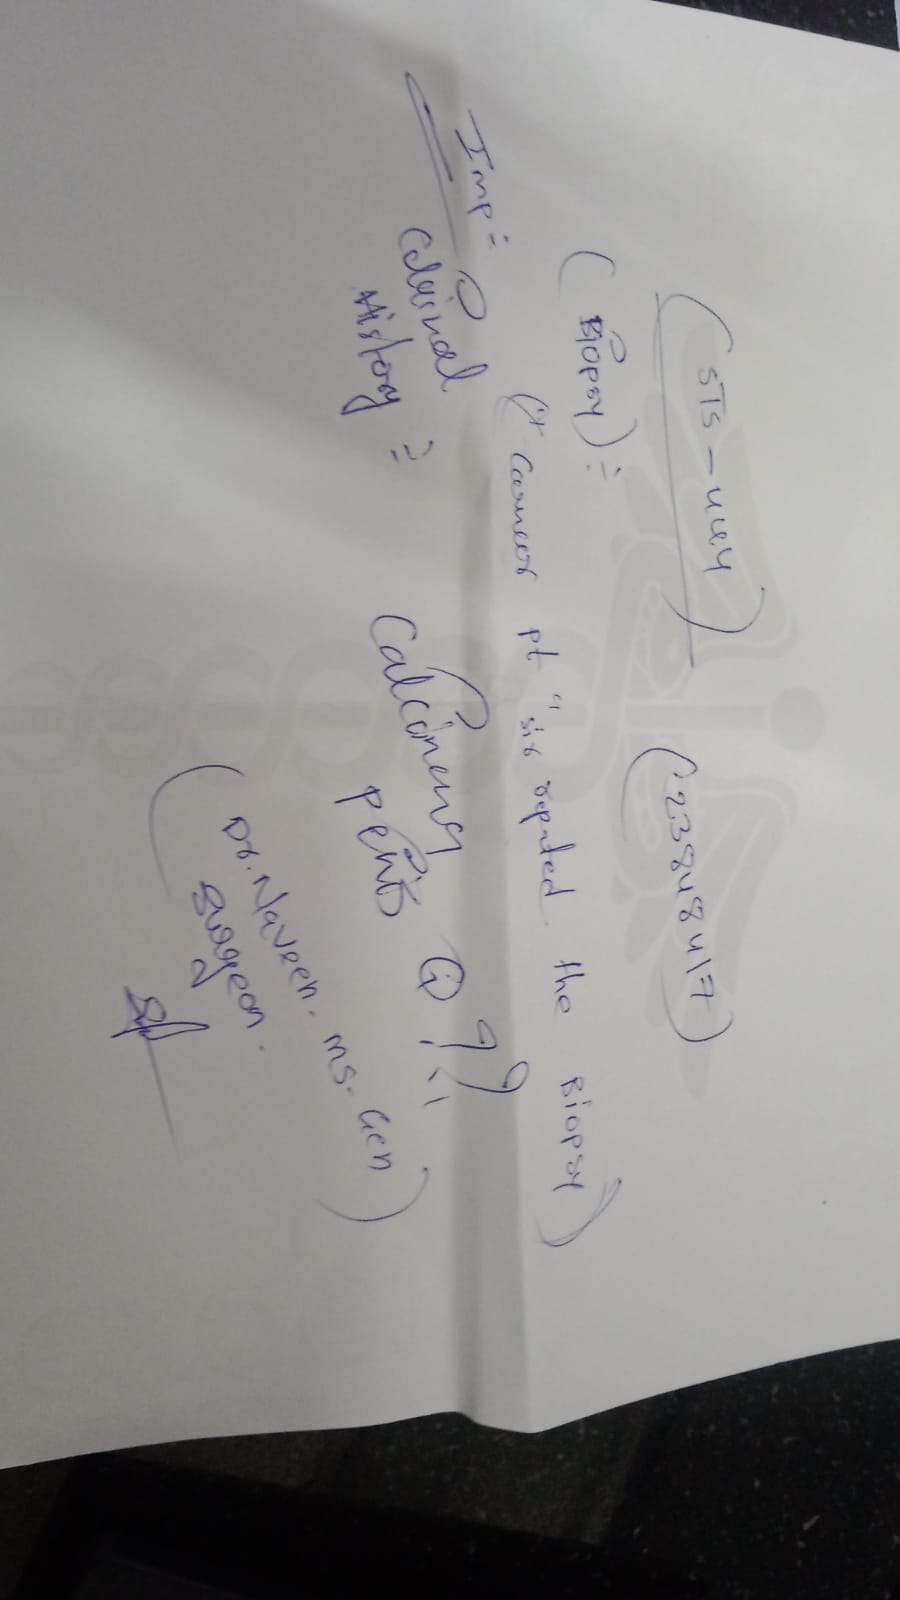 (STS-444) (23848417)
(Biopsy):-
(* Cancer pt "sir repited. the Biopsy)
Imp:-
Clinical
History :-
Calcinema
penis
(Dr. Naveen. ms. Gen
Surgeon.